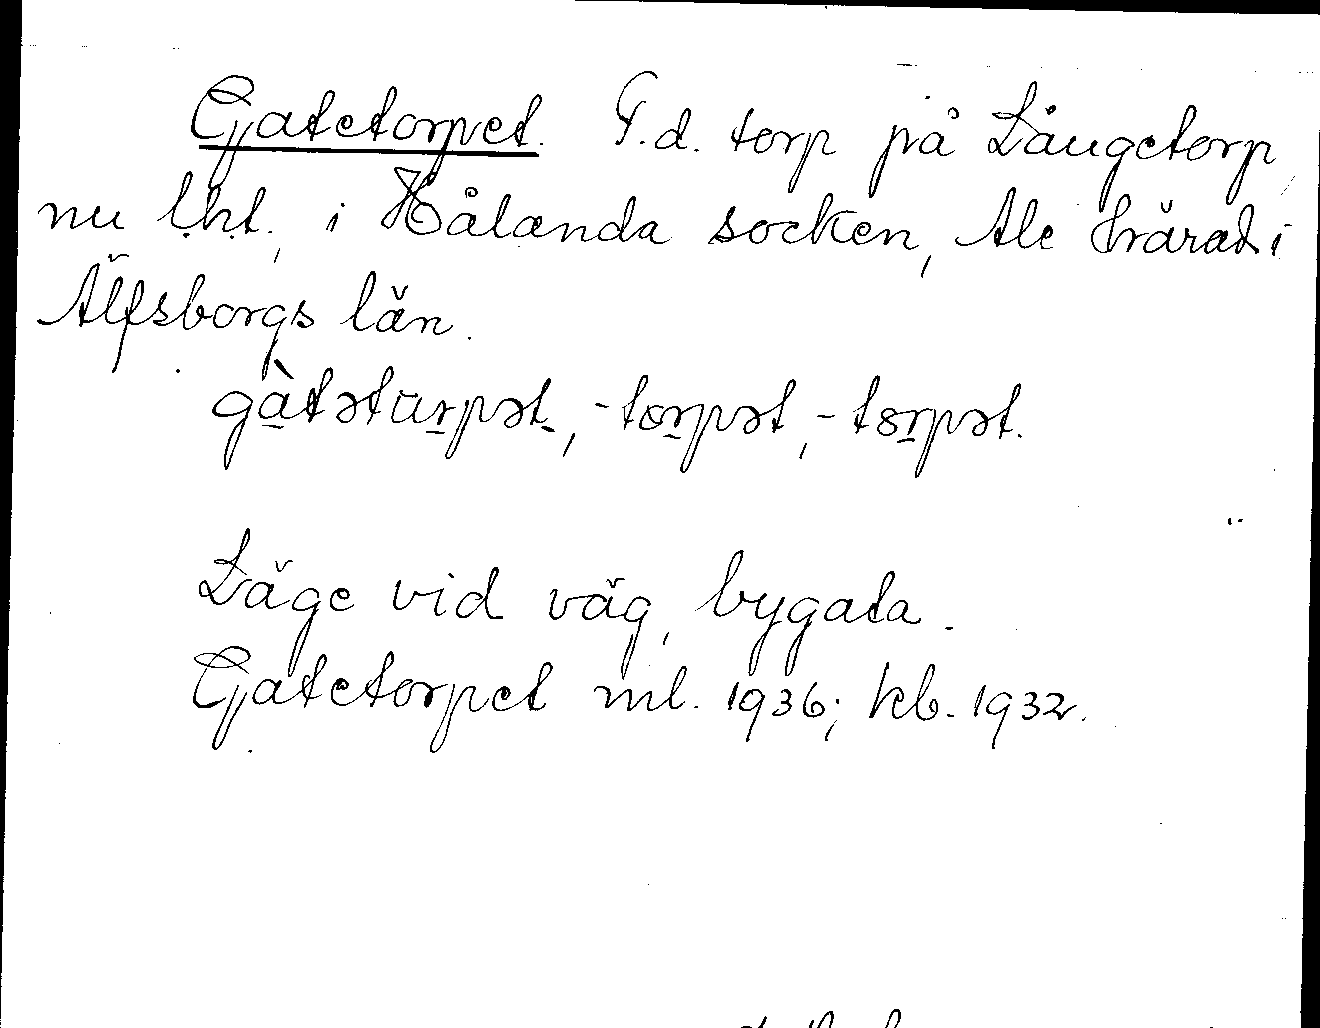 Gatetorpet. F.d. torp på Långetorp,
nu lht., i Hålanda socken, Ale härad i
Älfsborgs län.
gàtətūrpət, -torpət, -tɤrpət.
Läge vid väg, bygata.
Gatetorpet ml. 1936; kb. 1932.